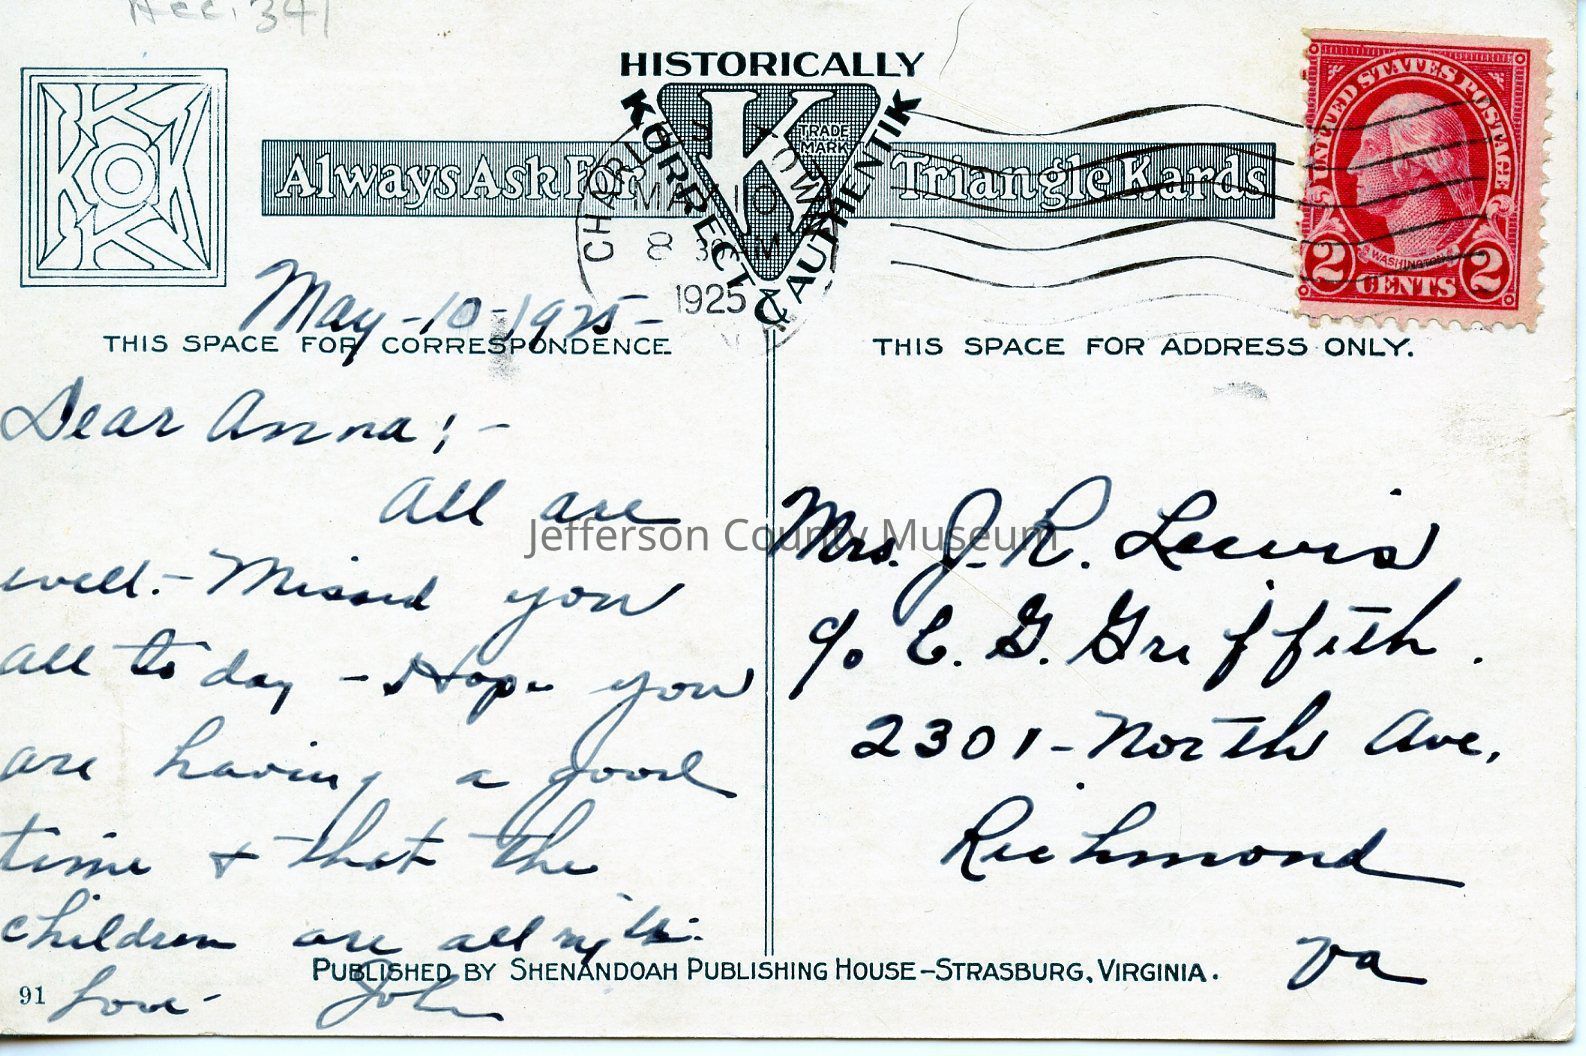 Acc. 341
HISTORICALLY
KORRECT & AUTHENTIK
K
TRADE
MARK
Always Ask For
Triangle Kards
K K K K
UNITED STATES POSTAGE
WASHINGTON
2 CENTS 2
CHARLES TOWN
MAY 10
8 30 M
1925
W. V
May-10-1925-
THIS SPACE FOR CORRESPONDENCE
Dear Anna;-
All are
well.- Missed you
all to day - Hope you
are having a good
time & that the
children are all right.
Love- John
91
THIS SPACE FOR ADDRESS ONLY.
Mrs. J. R. Lewis
c/o E. G. Griffith.
2301-North Ave.
Richmond
Va
PUBLISHED BY SHENANDOAH PUBLISHING HOUSE-STRASBURG, VIRGINIA.
Jefferson County Museum